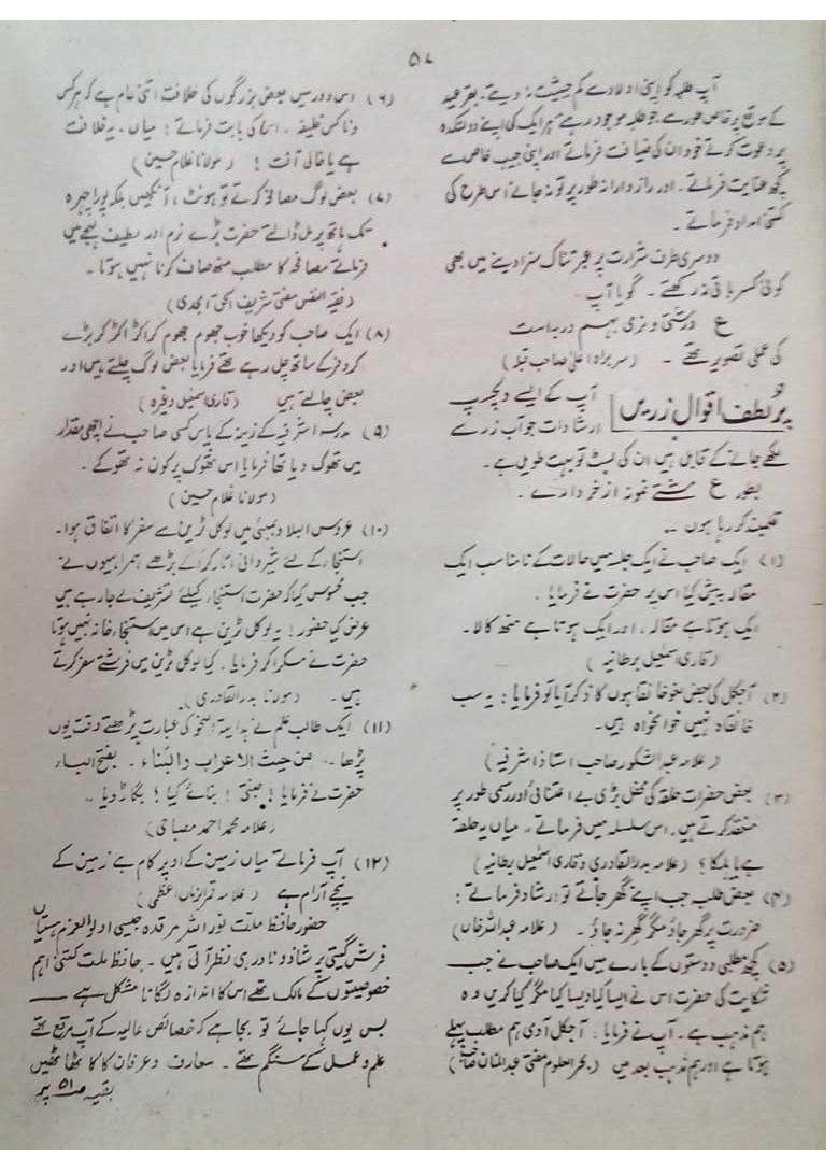 ۵۷
آپ طلبہ کو اپنی اولاد سے کم حیثیت نہ دیتے۔ بقر عید
کے موقع پر خاص طور سے جو طلبہ موجود رہتے ہر ایک کی اپنے دولتکدہ
پر دعوت کرتے خود ان کی ضیافت فرماتے اور اپنی جیب خاص سے
کچھ عنایت فرماتے۔ اور راز دارانہ طور پر تو نہ جانے اس طرح کی
کتنی امداد فرماتے۔
دوسری طرف شرارت پر عبرتناک سزا دینے میں بھی
کوئی کسر باقی نہ رکھتے۔ گویا آپ۔
ع درشتی و نرمی بہم در بہ است
کی عملی تصویر تھے۔ (سربراہ اعلیٰ صاحب قبلہ)
پُر لطف اقوال زریں
آپ کے ایسے دلچسپ
ارشادات جو آب زر سے
لکھے جانے کے قابل ہیں ان کی لسٹ تو بہت طویل ہے۔
بطور ع مشتے نمونہ از خروارے۔
قلمبند کر رہا ہوں۔
(۱) ایک صاحب نے ایک جلسہ میں حالات کے نامناسب ایک
مقالہ پیش کیا اس پر حضرت نے فرمایا۔
ایک ہوتا ہے مقالہ، اور ایک ہوتا ہے منھ کالا۔
(قاری اسمٰعیل برطانیہ)
(۲) آجکل کی بعض لغو خانقاہوں کا ذکر آیا تو فرمایا: یہ سب
خانقاہ نہیں خوامخواہ ہیں۔
(علامہ عبد الشکور صاحب استاذ اشرفیہ)
(۳) بعض حضرات حلقہ کی محفل بڑی بے اعتنائی اور رسمی طور پر
منعقد کرتے ہیں۔ اس سلسلہ میں فرماتے، میاں یہ حلقہ
ہے یا ہلکا؟ (علامہ بدر القادری و قاری اسمٰعیل برطانیہ)
(۴) بعض طلبہ جب اپنے گھر جاتے تو ارشاد فرماتے:
ضرورت پر گھر جاؤ مگر گھر نہ جاؤ۔ (علامہ عبد اللہ خاں)
(۵) کچھ مطلبی دوستوں کے بارے میں ایک صاحب نے جب
شکایت کی حضرت اس نے ایسا کیا ویسا کیا مگر کیا کریں وہ
ہم مذہب ہے۔ آپ نے فرمایا۔ آجکل آدمی ہم مطلب پہلے
ہوتا ہے اور ہم مذہب بعد میں (بحر العلوم مفتی عبد المنان صاحب)
(۶) اس دور میں بعض بزرگوں کی خلافت اتنی عام ہے کہ ہر کس
و ناکس خلیفہ، اس کی بابت فرماتے: میاں، یہ خلافت
ہے یا خالی آفت! (مولانا غلام حسین)
(۷) بعض لوگ مصافحہ کرتے تو ہونٹ، آنکھیں بلکہ پورا چہرہ
تک ہاتھ پر مل ڈالتے حضرت بڑے نرم اور لطیف لہجے میں
فرماتے مصافحہ کا مطلب منھ صاف کرنا نہیں ہوتا۔
(فقیہ النفس مفتی شریف الحق امجدی)
(۸) ایک صاحب کو دیکھا خوب جھوم جھوم کر اکڑ اکڑ کر بڑے
کروفر کے ساتھ چل رہے تھے فرمایا بعض لوگ چلتے ہیں اور
بعض چالتے ہیں (قاری اسمٰعیل وغیرہ)
(۹) مدرسہ اشرفیہ کے زینہ کے پاس کسی صاحب نے اچھی مقدار
میں تھوک دیا تھا فرمایا اس تھوک پر کون نہ تھوکے۔
(مولانا غلام حسین)
(۱۰) عروس البلاد بمبئی میں لوکل ٹرین سے سفر کا اتفاق ہوا۔
استنجا کے لئے شیروانی اتار کر آگے بڑھے ہمراہیوں نے
جب محسوس کیا کہ حضرت استنجا کیلئے تشریف لے جا رہے ہیں
عرض کیا حضور! یہ لوکل ٹرین ہے اس میں استنجا خانہ نہیں ہوتا
حضرت نے مسکرا کر فرمایا۔ کیا لوکل ٹرین میں فرشتے سفر کرتے
ہیں۔ (مولانا بدر القادری)
(۱۱) ایک طالب علم نے ہدایۃ النحو کی عبارت پڑھتے وقت یوں
پڑھا۔ من حیث الاعراب والبَناء۔ بفتح الباء
حضرت نے فرمایا! ! بنائے کیا! بگاڑ دیا۔
(علامہ محمد احمد مصباحی)
(۱۲) آپ فرماتے میاں زمین کے اوپر کام ہے زمین کے
نیچے آرام ہے (علامہ قمر الزماں اعظمی)
حضور حافظ ملت نور اللہ مرقدہ جیسی اولو العزم ہستیاں
فرش گیتی پر شاذ و نادر ہی نظر آتی ہیں۔ حافظ ملت کتنی اہم
خصوصیتوں کے مالک تھے اس کا اندازہ لگانا مشکل ہے
بس یوں کہا جائے تو بجا ہے کہ خصائص عالیہ کے آپ مرقع تھے
علم و عمل کے سنگم تھے۔ معارف و عرفان کا ٹھاٹھیں
بقیہ صـ ۵۱ پر